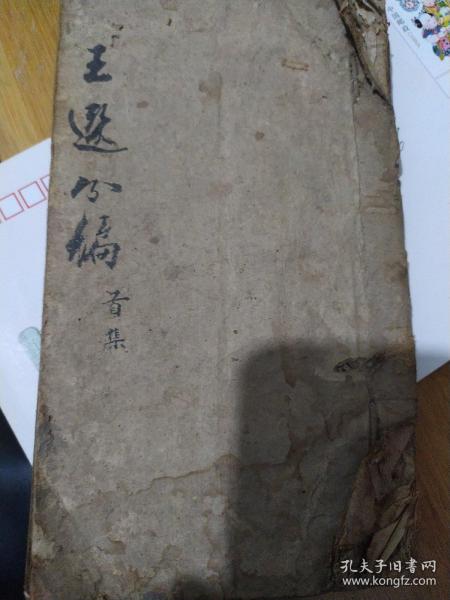 王選分編
首集
孔夫子旧书网
www.kongfz.com